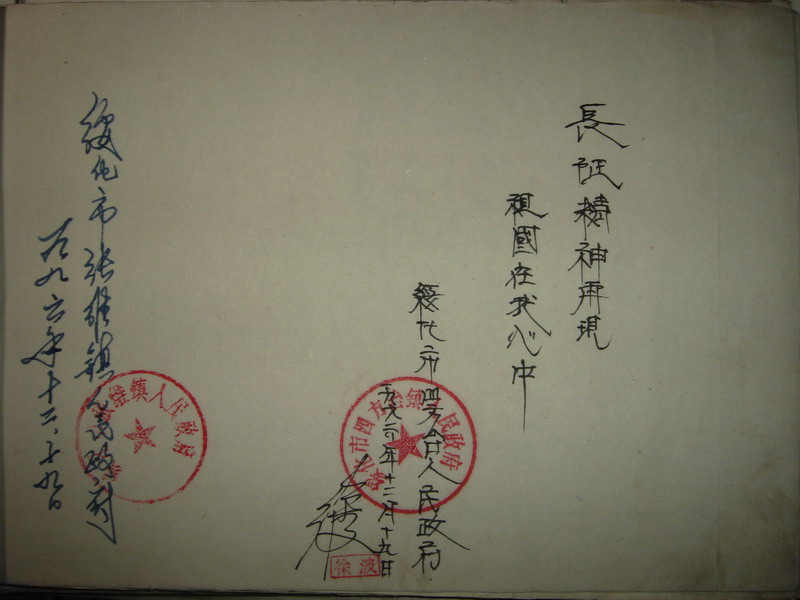 長征精神再現
祖國在我心中
綏化市四方台人民政府
一九九六年十二月十九日
绥化市四方台镇人民政府
徐波
徐波
绥化市张维镇人民政府
一九九六年十二、十九日
张维镇人民政府